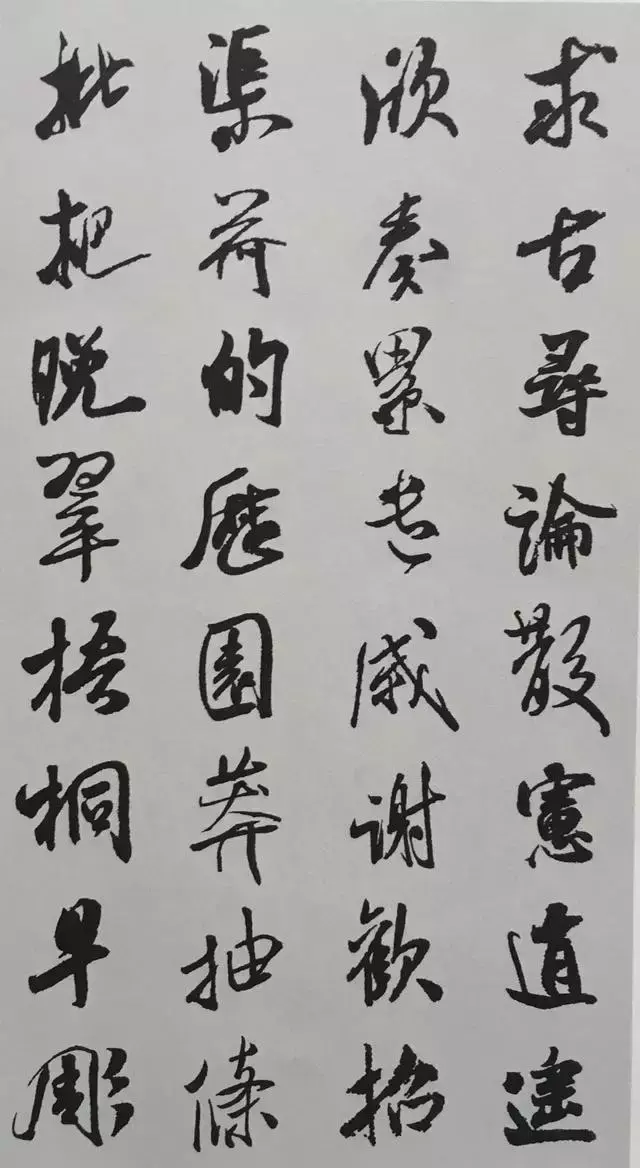 求古尋論散慮逍遙
欣奏累遣慼謝歡招
渠荷的歷園莽抽條
枇杷晚翠梧桐早彫